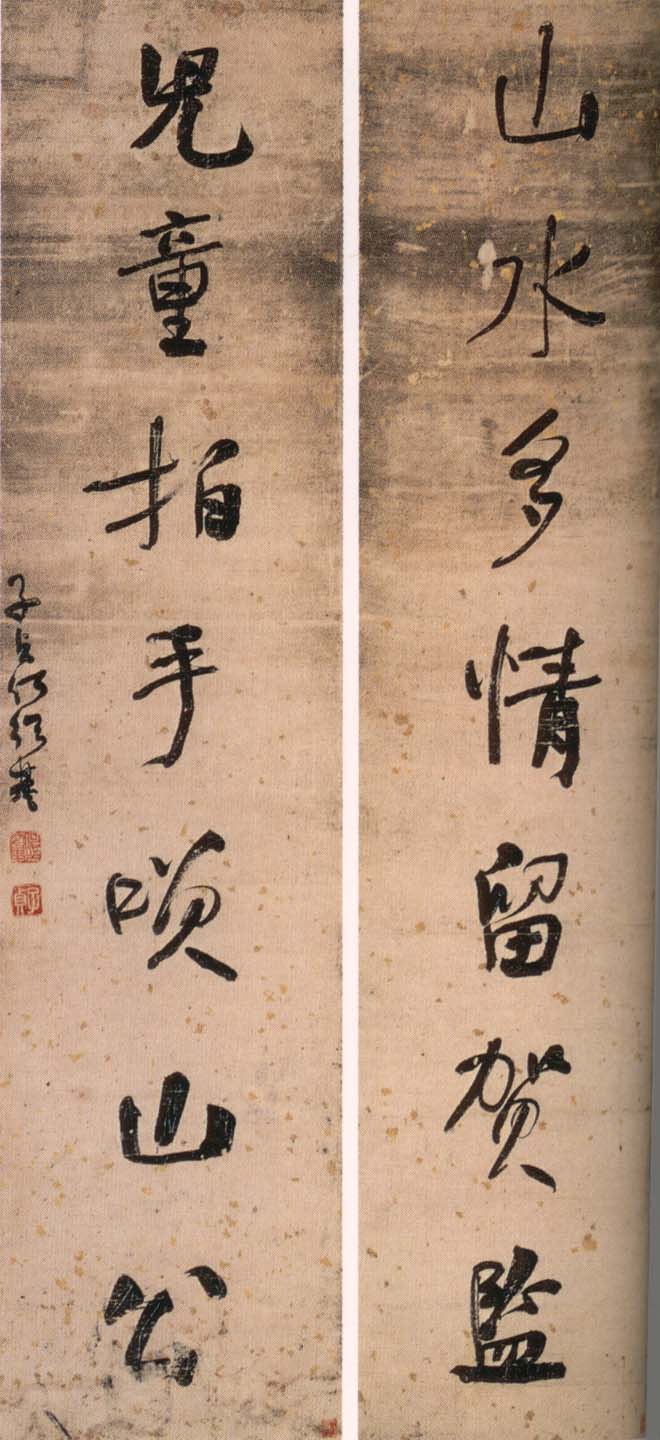 山水多情留賀監
兒童拍手唤山公
子貞何紹基
子貞